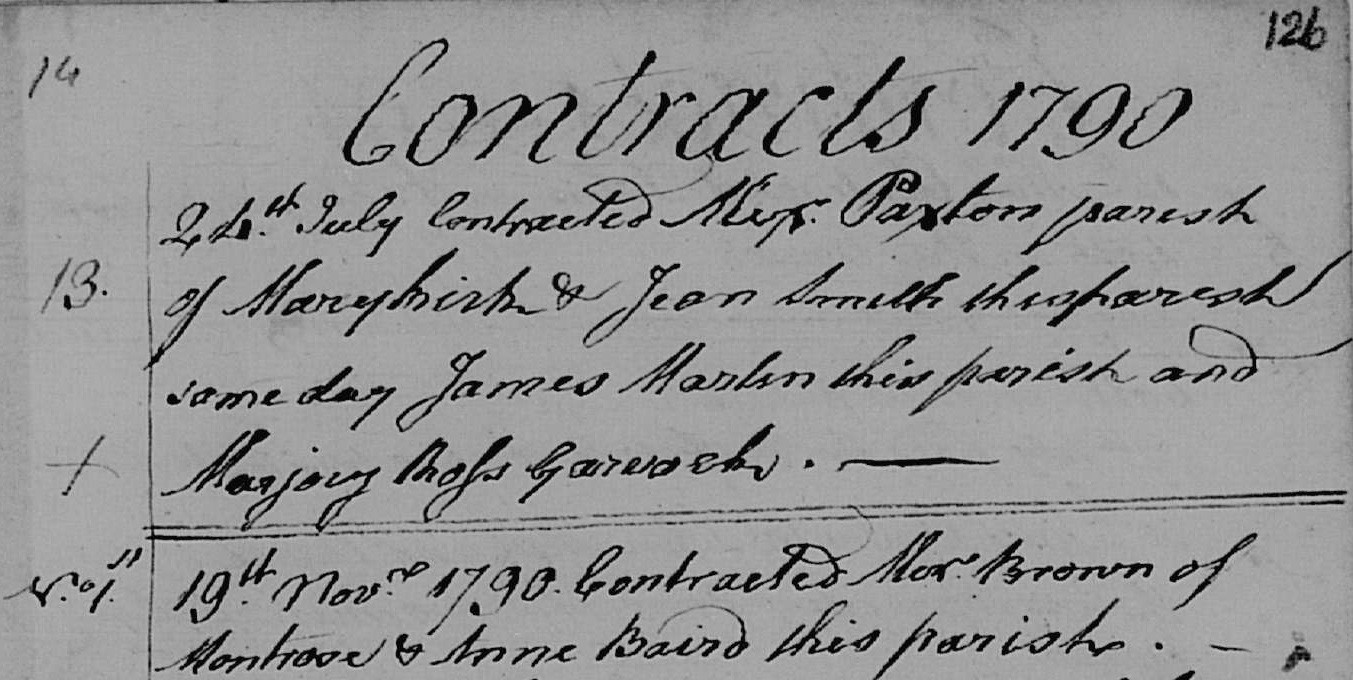 126
14
Contracts 1790
24th. July Contracted Alexr. Paxton parish
13. of Marykirk & Jean Smith this parish
same day James Martin this parish and
+ Marjory Ross Garvock. —
No. 1st 19th. Novr. 1790. Contracted Alexr. Brown of
Montrose & Anne Baird this parish. —